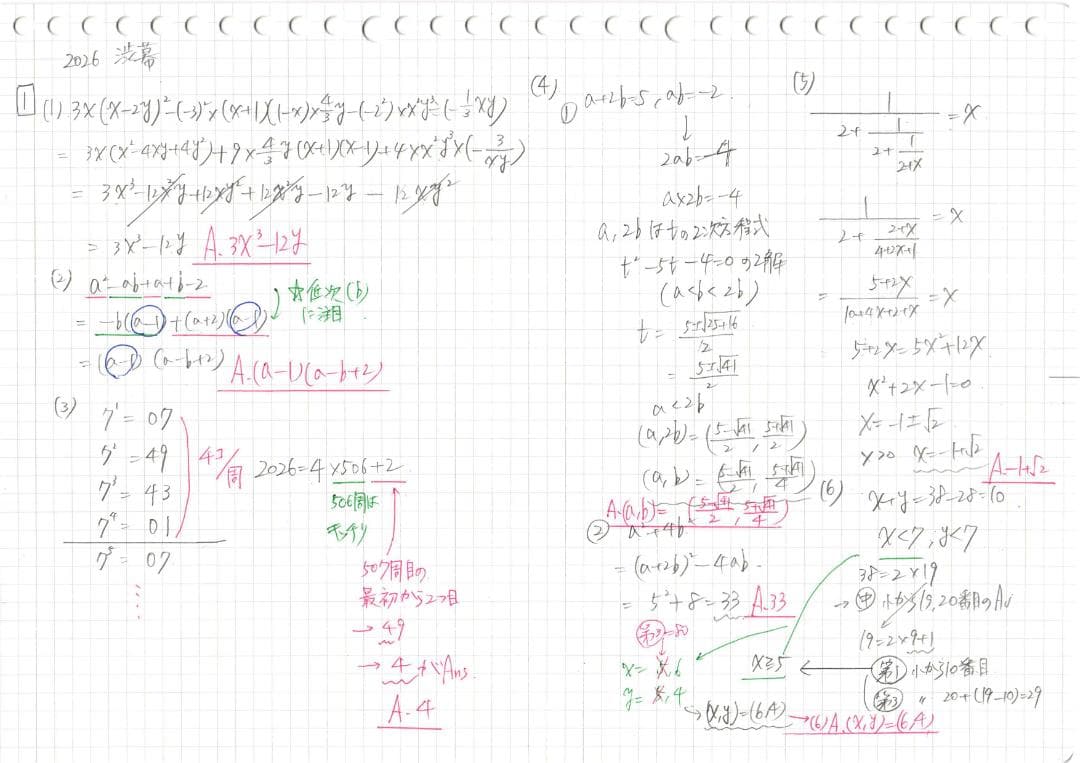 2026 渋幕
1
(1) 3x(x-2y)²-(-3)²×(x+1)(1-x)×4/3y-(-2²)×x²y³÷(-1/3xy)
= 3x(x²-4xy+4y²)+9×4/3y(x+1)(x-1)+4×x²y³×(-3/xy)
= 3x³-12x²y+12xy²+12x²y-12y-12xy²
= 3x³-12y A. 3x³-12y
(2) a²-ab+a+b-2
= -b(a-1)+(a+2)(a-1)
☆低次(b)に注目
= (a-1)(a-b+2) A. (a-1)(a-b+2)
(3) 7¹= 07
7²= 49
7³= 43
7⁴= 01
7⁵= 07
4コ/周
2026=4×506+2
506周は
507周目の
最初から2コ目
→ 49
→ 4がAns.
A. 4
(4)
① a+2b=5, ab=-2.
↓
2ab=-4
a×2b=-4
a, 2bはtの2次方程式
t²-5t-4=0の2解
(a<b<2b)
t= 5±√25+16/2
= 5±√41/2
a<2b
(a,2b)=(5-√41/2, 5+√41/2)
(a,b)=(5-√41/2, 5+√41/4)
A.(a,b)=(5-√41/2, 5+√41/4)
② a²+4b²
=(a+2b)²-4ab.
= 5²+8=33 A.33
(5)
1/2+1/2+1/2+x=x
1/2+2+x/4+2x+1=x
= 5+2x/10+4x+2+x=x
5+2x=5x²+12x.
x²+2x-1=0.
x=-1±√2.
x>0 x=-1+√2
A.-1+√2
(6)
x+y=38-28=10
x<7, y<7
38=2×19
→ 中 小から19,20番目のAv
19=2×9+1
第1 小から10番目
第3 〃 20+(19-10)=29
x≧5
x= 6
y= 4
→(x,y)=(6,4) →(6)A.(x,y)=(6,4)